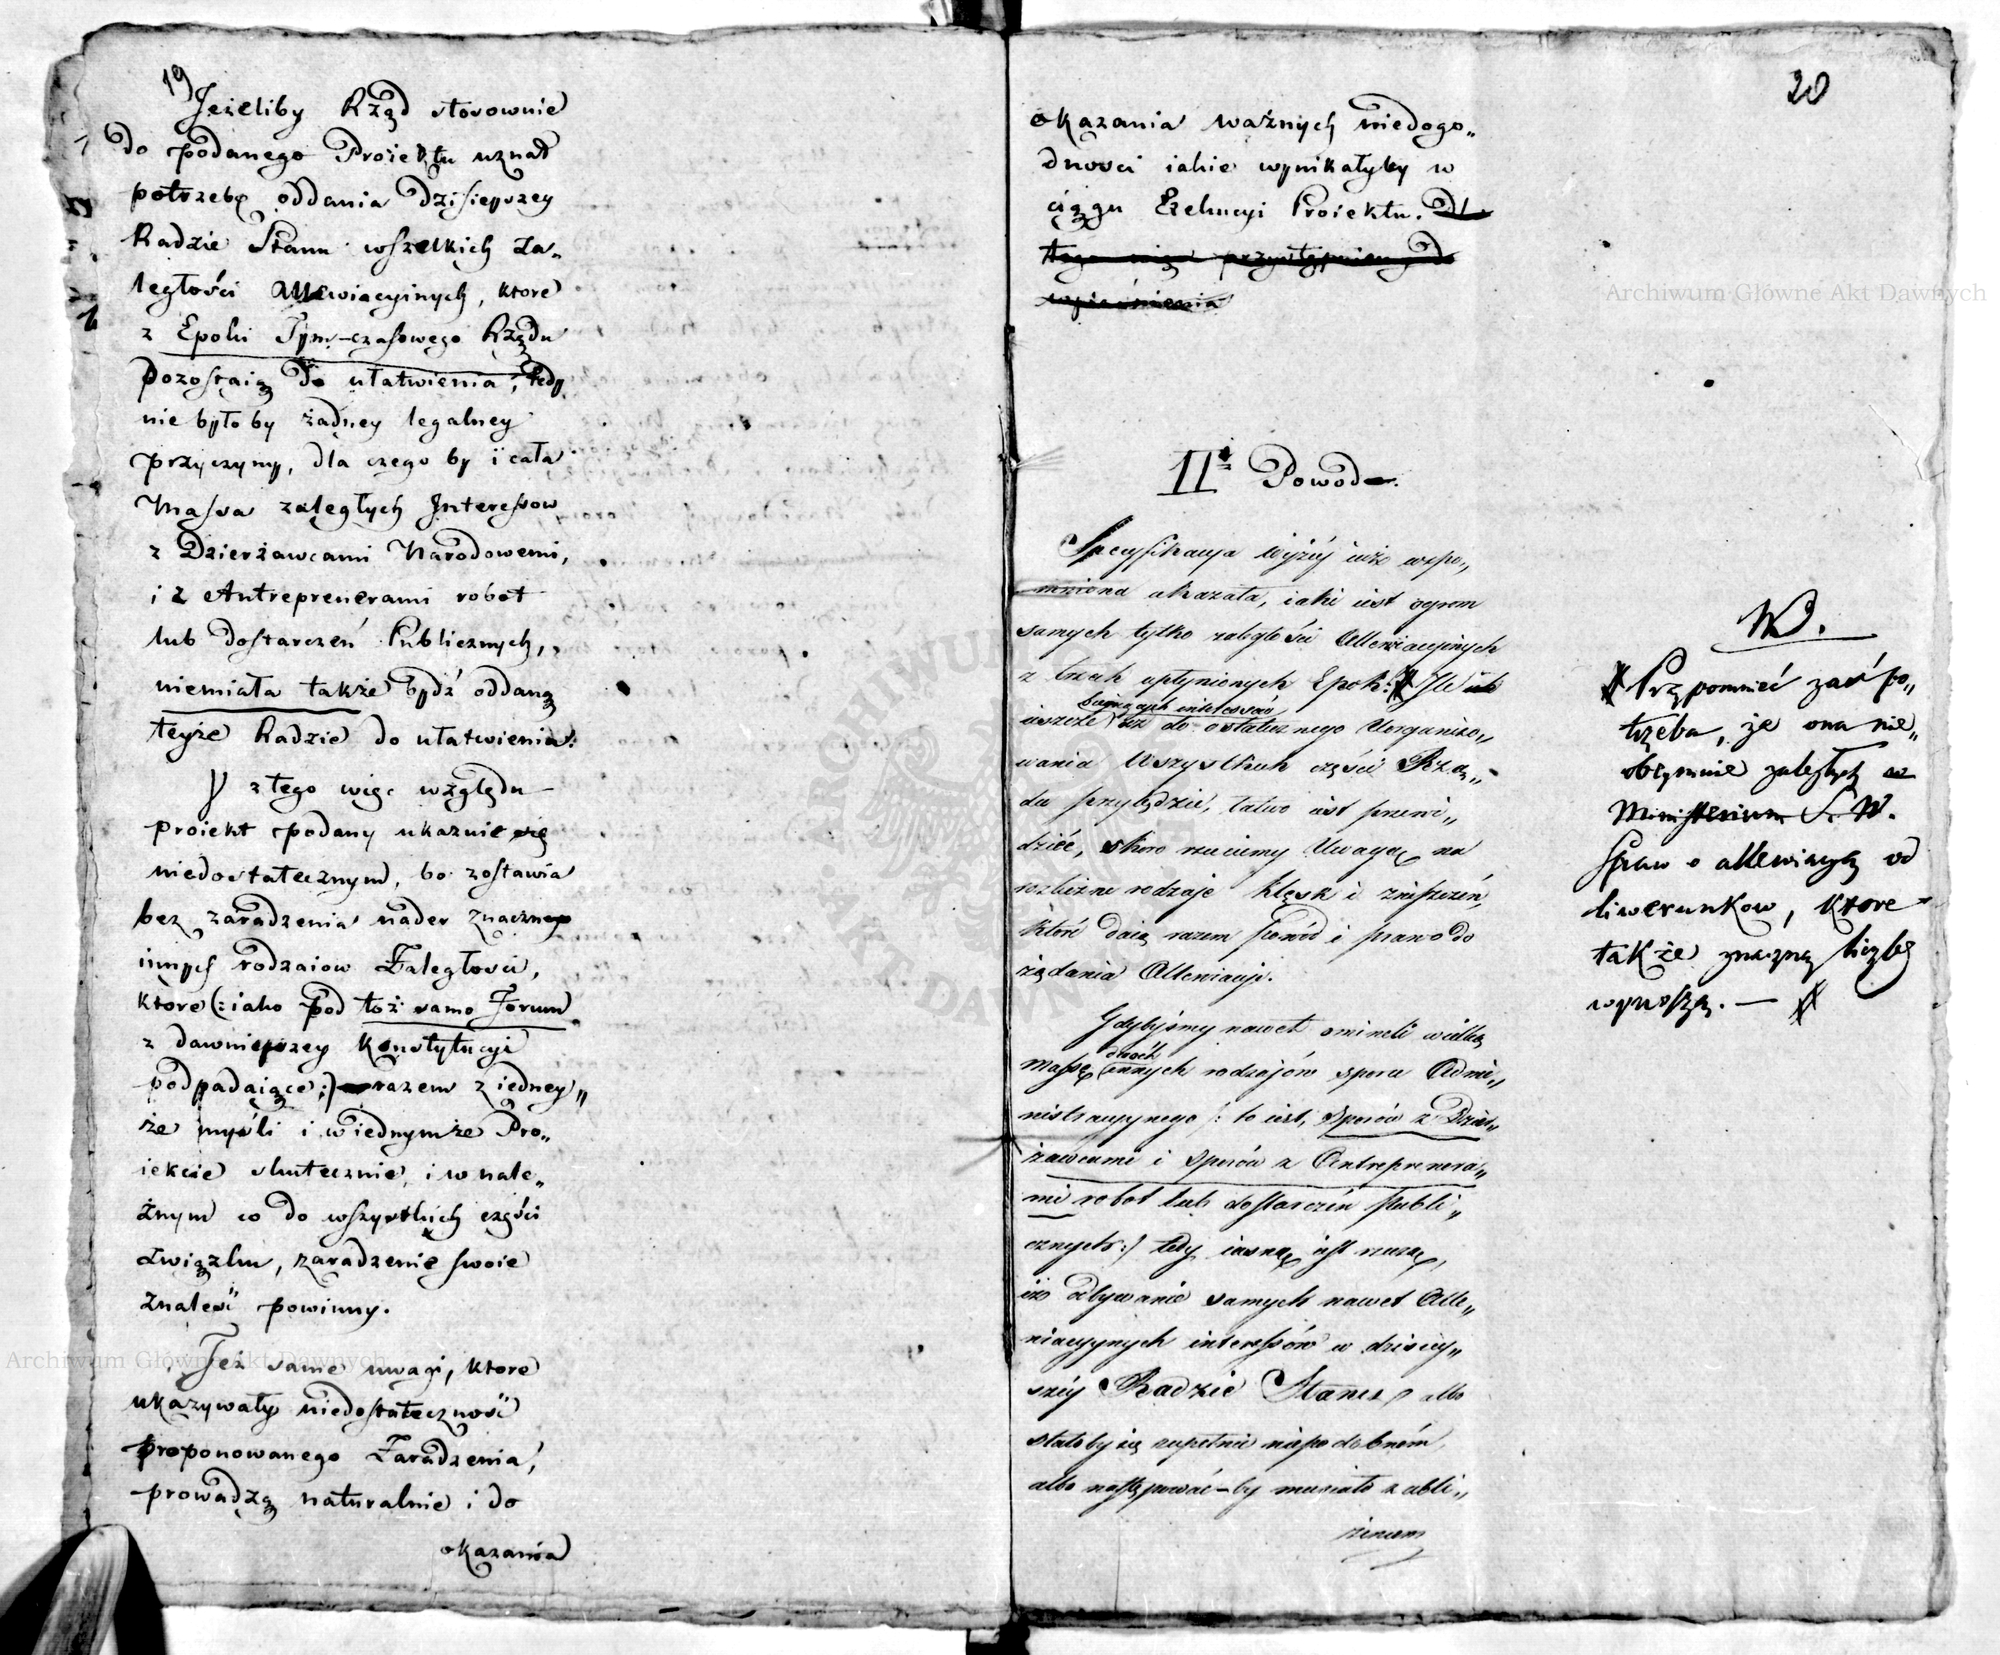 19
Jeżeliby Rząd stosownie
do podanego Proiektu uznał
potrzebę oddania Dzisieyszey
Radzie Stanu wszelkich za„
ległości Allewiacyinych, ktore
z Epoki Tym-czasowego Rządu
pozostaią do ułatwienia, tedy
nie było by żadney legalney
przyczyny, dla czego by i cała
Massa zaległych Interessow
z Dzierżawcami Narodowemi,
i z Antreprenerami robot
lub Dostarczeń Publicznych,
niemiała także bydź oddaną
teyże Radzie do ułatwienia.
Y z tego więc względu
proiekt podany ukazuie się
niedostatecznym, bo zostawia
bez zaradzenia nader znaczne
innych rodzaiow Zaległości,
ktore (: iako pod toż samo Forum
z dawnieyszey Konstytucyi
podpadaiące :) razem z iedney„
że myśli i w iednymże Pro„
iekcie skutecznie, i w nale„
żnym co do wszystkich części
związku, zaradzenie swoie
znaleść powinny.
Też same uwagi, ktore
ukazywały niedostateczność
proponowanego Zaradzenia,
prowadzą naturalnie i do
okazania
20
okazania ważnych niedogo„
dności iakie wynikałyby w
ciągu Exekucyi Proiektu. Dl
tego więc przystąpmy do
wyiaśnienia
II. Powod
Specyfikacya wyżéy iuż wspo„
mniona ukazała, iaki iest ogrom
samych tylko zaległości Allewiacyinych
z trzech upłynionych Epok: # Ile ich
bieżących interessów
ieszcze aż do ostatecznego Uorganizo„
wania Wszystkich części Rzą„
du przybędzie, łatwo iest przewi„
dzieć, skoro rzucimy Uwagę na
rozliczne rodzaje klęsk i zniszczeń,
które daią razem powód i prawo do
żądania Allewiacyi.
Gdybyśmy nawet omineli wielką
dwóch
massę innych rodzajów sporu Admi„
nistracyynego /: to iest, sporów z Dzier„
żawcami i sporów z Antreprenera„
mi robot lub dostarczeń publi„
cznych :/ tedy iasną iest rzeczą,
iż odbywanie samych nawet Alle„
wiacyynych interessów w dzisiey„
széy Radzie Stanu, albo
stałoby się zupełnie niepodobném,
albo następować-by musiało z ubli„
żeniem
W.
# Przypomnieć zaś po„
trzeba, że ona nie„
obeymuie zaległych w
Ministerium S. W.
Spraw o allewiacyą od
liwerunkow, ktore
także znaczną liczbę
wynoszą. — #
Archiwum Główne Akt Dawnych
Archiwum Główne Akt Dawnych
ARCHIWUM GŁÓWNE AKT DAWNYCH